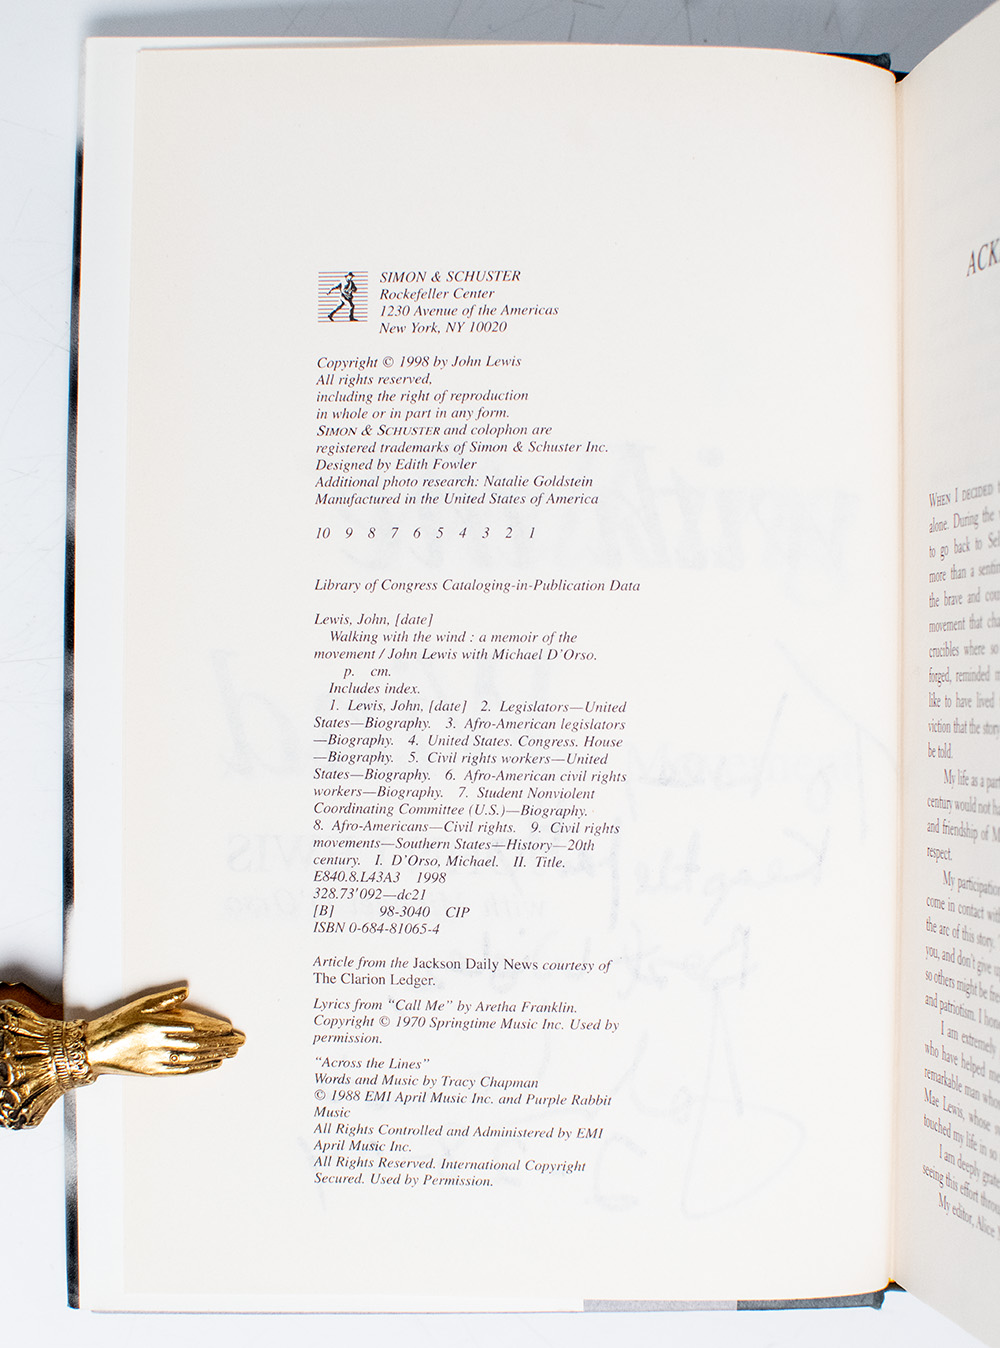 SIMON & SCHUSTER
Rockefeller Center
1230 Avenue of the Americas
New York, NY 10020
Copyright © 1998 by John Lewis
All rights reserved,
including the right of reproduction
in whole or in part in any form.
SIMON & SCHUSTER and colophon are
registered trademarks of Simon & Schuster Inc.
Designed by Edith Fowler
Additional photo research: Natalie Goldstein
Manufactured in the United States of America
10 9 8 7 6 5 4 3 2 1
Library of Congress Cataloging-in-Publication Data
Lewis, John, [date]
Walking with the wind : a memoir of the
movement / John Lewis with Michael D'Orso.
p. cm.
Includes index.
1. Lewis, John, [date] 2. Legislators—United
States—Biography. 3. Afro-American legislators
—Biography. 4. United States. Congress. House
—Biography. 5. Civil rights workers—United
States—Biography. 6. Afro-American civil rights
workers—Biography. 7. Student Nonviolent
Coordinating Committee (U.S.)—Biography.
8. Afro-Americans—Civil rights. 9. Civil rights
movements—Southern States—History—20th
century. I. D'Orso, Michael. II. Title.
E840.8.L43A3 1998
328.73'092—dc21
[B] 98-3040 CIP
ISBN 0-684-81065-4
Article from the Jackson Daily News courtesy of
The Clarion Ledger.
Lyrics from "Call Me" by Aretha Franklin.
Copyright © 1970 Springtime Music Inc. Used by
permission.
"Across the Lines"
Words and Music by Tracy Chapman
© 1988 EMI April Music Inc. and Purple Rabbit
Music
All Rights Controlled and Administered by EMI
April Music Inc.
All Rights Reserved. International Copyright
Secured. Used by Permission.
WHEN I DECIDED
alone. During the
to go back to
more than a
the brave and
movement that
crucibles where so
forged, reminded
like to have lived
viction that the
be told.
My life as a
century would not
and friendship of
respect.
My participation
come in contact
the arc of this story.
you, and don't give
so others might be
and patriotism. I
I am extremely
who have helped
remarkable man
Mae Lewis, whose
touched my life in so
I am deeply
seeing this effort
My editor, Alice